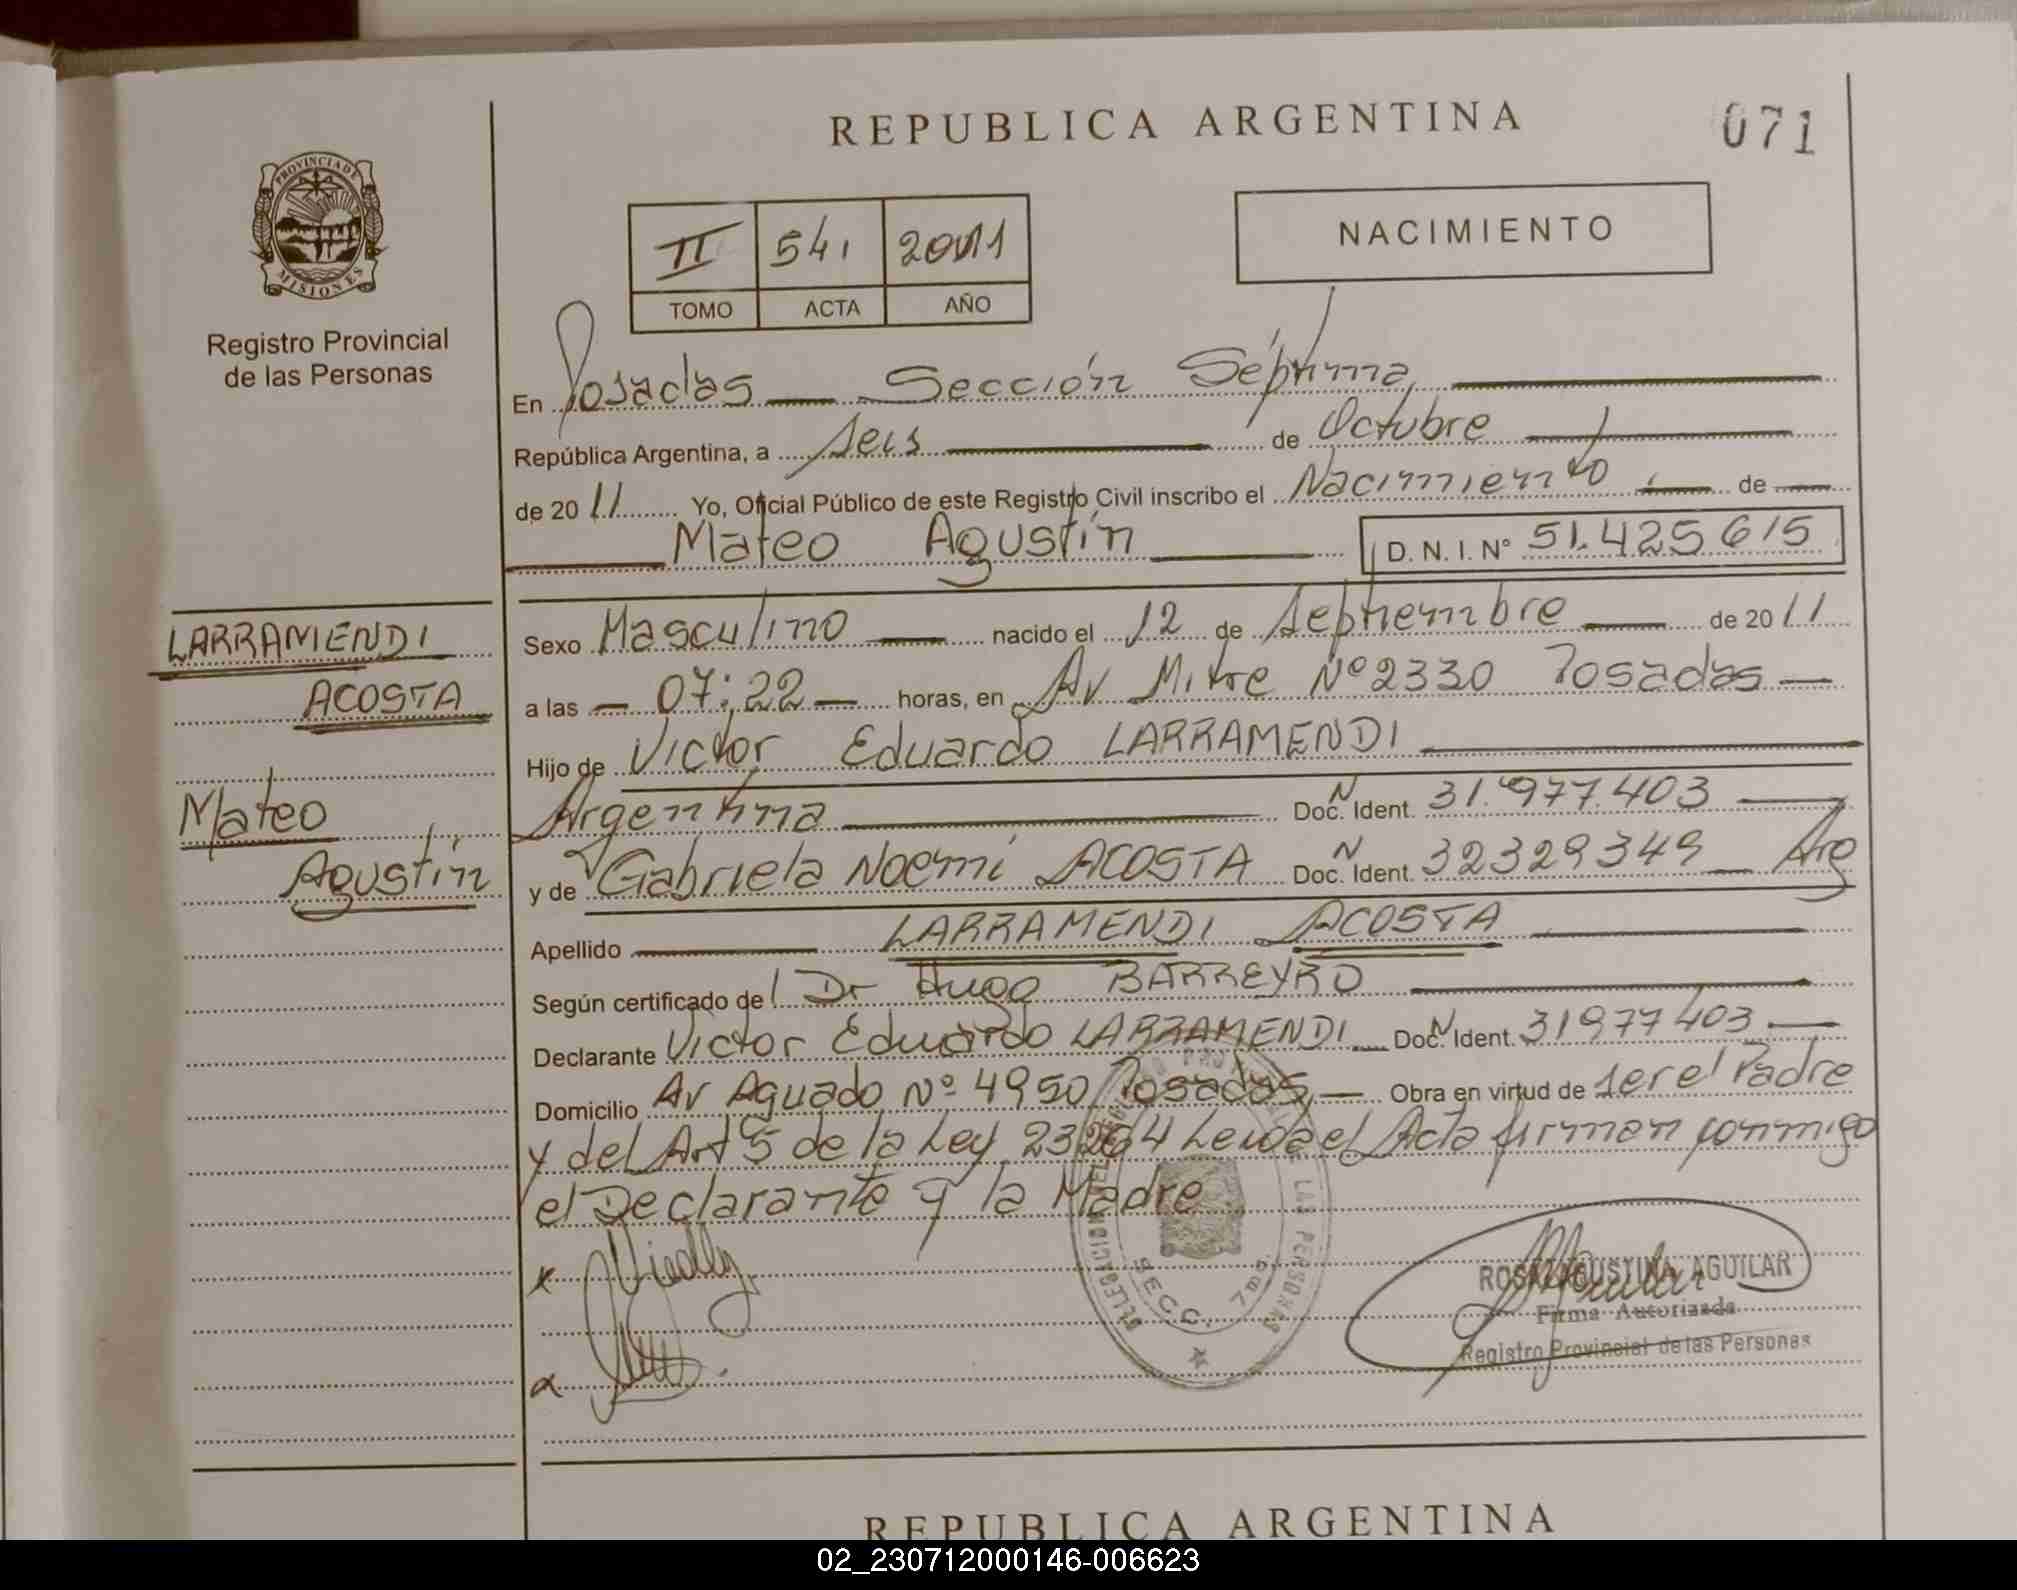 REPUBLICA ARGENTINA
071
PROVINCIA DE
MISIONES
Registro Provincial
de las Personas
II 541 2011
TOMO ACTA AÑO
NACIMIENTO
En Posadas Sección Séptima
República Argentina, a Seis de Octubre
de 2011 Yo, Oficial Público de este Registro Civil inscribo el Nacimiento de
Mateo Agustín D. N. I. Nº 51.425615
LARRAMENDI
ACOSTA
Mateo
Agustín
Sexo Masculino nacido el 12 de Septiembre de 2011
a las 07:22 horas, en Av Mitre Nº 2330 Posadas
Hijo de Victor Eduardo LARRAMENDI
Argentina Doc. N Ident. 31.977.403
y de Gabriela Noemi ACOSTA Doc. N Ident. 32329349 Arg
Apellido LARRAMENDI ACOSTA
Según certificado de Dr Hugo BARREYRO
Declarante Victor Eduardo LARRAMENDI Doc. N Ident. 31977403
Domicilio Av Aguado Nº 4950 Posadas Obra en virtud de ser el Padre
y del Art 5 de la Ley 23264 Leida el Acta firman conmigo
el Declarante y la Madre
DELEGACION
DE LAS PERSONAS
SECC. 7ma
ROSA AGUSTINA AGUILAR
Firma Autorizada
Registro Provincial de las Personas
REPUBLICA ARGENTINA
02_230712000146-006623